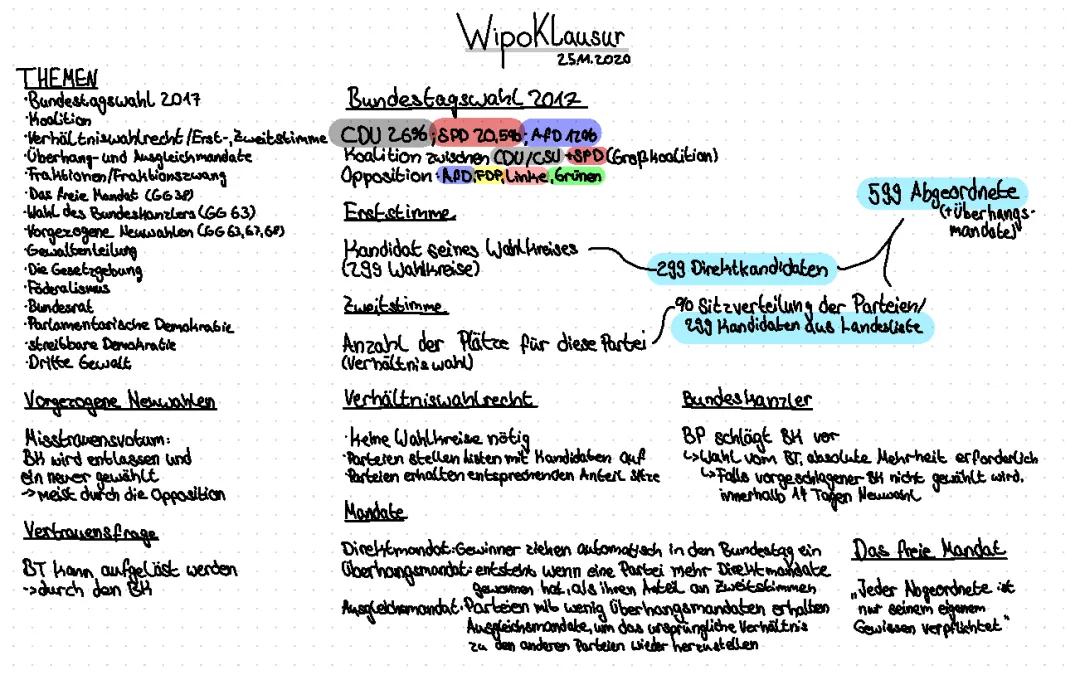 WipoKlausur
25.11.2020
THEMEN
·Bundestagswahl 2017
·Koalition
·Verhältniswahlrecht/Erst-, Zweitstimme
·Überhang- und Ausgleichmandate
·Fraktionen/Fraktionszwang
·Das freie Mandat (GG38)
·Wahl des Bundeskanzlers (GG 63)
·Vorgezogene Neuwahlen (GG 63,67,68)
·Gewaltenteilung
·Die Gesetzgebung
·Föderalismus
·Bundesrat
·Parlamentarische Demokratie
·streitbare Demokratie
·Dritte Gewalt
Bundestagswahl 2017
CDU 26%; SPD 20,5%; AfD 12%
Koalition zwischen CDU/CSU +SPD (Großkoalition)
Opposition: AfD, FDP, Linke, Grünen
Erststimme
Kandidat seines Wahlkreises
(299 Wahlkreise)
299 Direktkandidaten
599 Abgeordnete
(+Überhangs-
mandate)
Zweitstimme
Anzahl der Plätze für diese Partei
(Verhältniswahl)
% Sitzverteilung der Parteien/
299 Kandidaten aus Landesliste
Vorgezogene Neuwahlen
Misstrauensvotum:
BK wird entlassen und
ein neuer gewählt
-> meist durch die Opposition
Vertrauensfrage
BT kann aufgelöst werden
-> durch den BK
Verhältniswahlrecht
·Keine Wahlkreise nötig
·Parteien stellen Listen mit Kandidaten auf
·Parteien erhalten entsprechenden Anteil Sitze
Bundeskanzler
BP schlägt BK vor
↳Wahl vom BT, absolute Mehrheit erforderlich
↳Falls vorgeschlagener BK nicht gewählt wird,
innerhalb 14 Tagen Neuwahl
Mandate
Direktmandat: Gewinner ziehen automatisch in den Bundestag ein
Überhangsmandat: entsteht wenn eine Partei mehr Direktmandate
gewonnen hat, als ihren Anteil an Zweitstimmen
Ausgleichsmandat: Parteien mit wenig Überhangsmandaten erhalten
Ausgleichsmandate, um das ursprüngliche Verhältnis
zu den anderen Parteien wieder herzustellen
Das freie Mandat
„Jeder Abgeordnete ist
nur seinem eigenem
Gewissen verpflichtet"